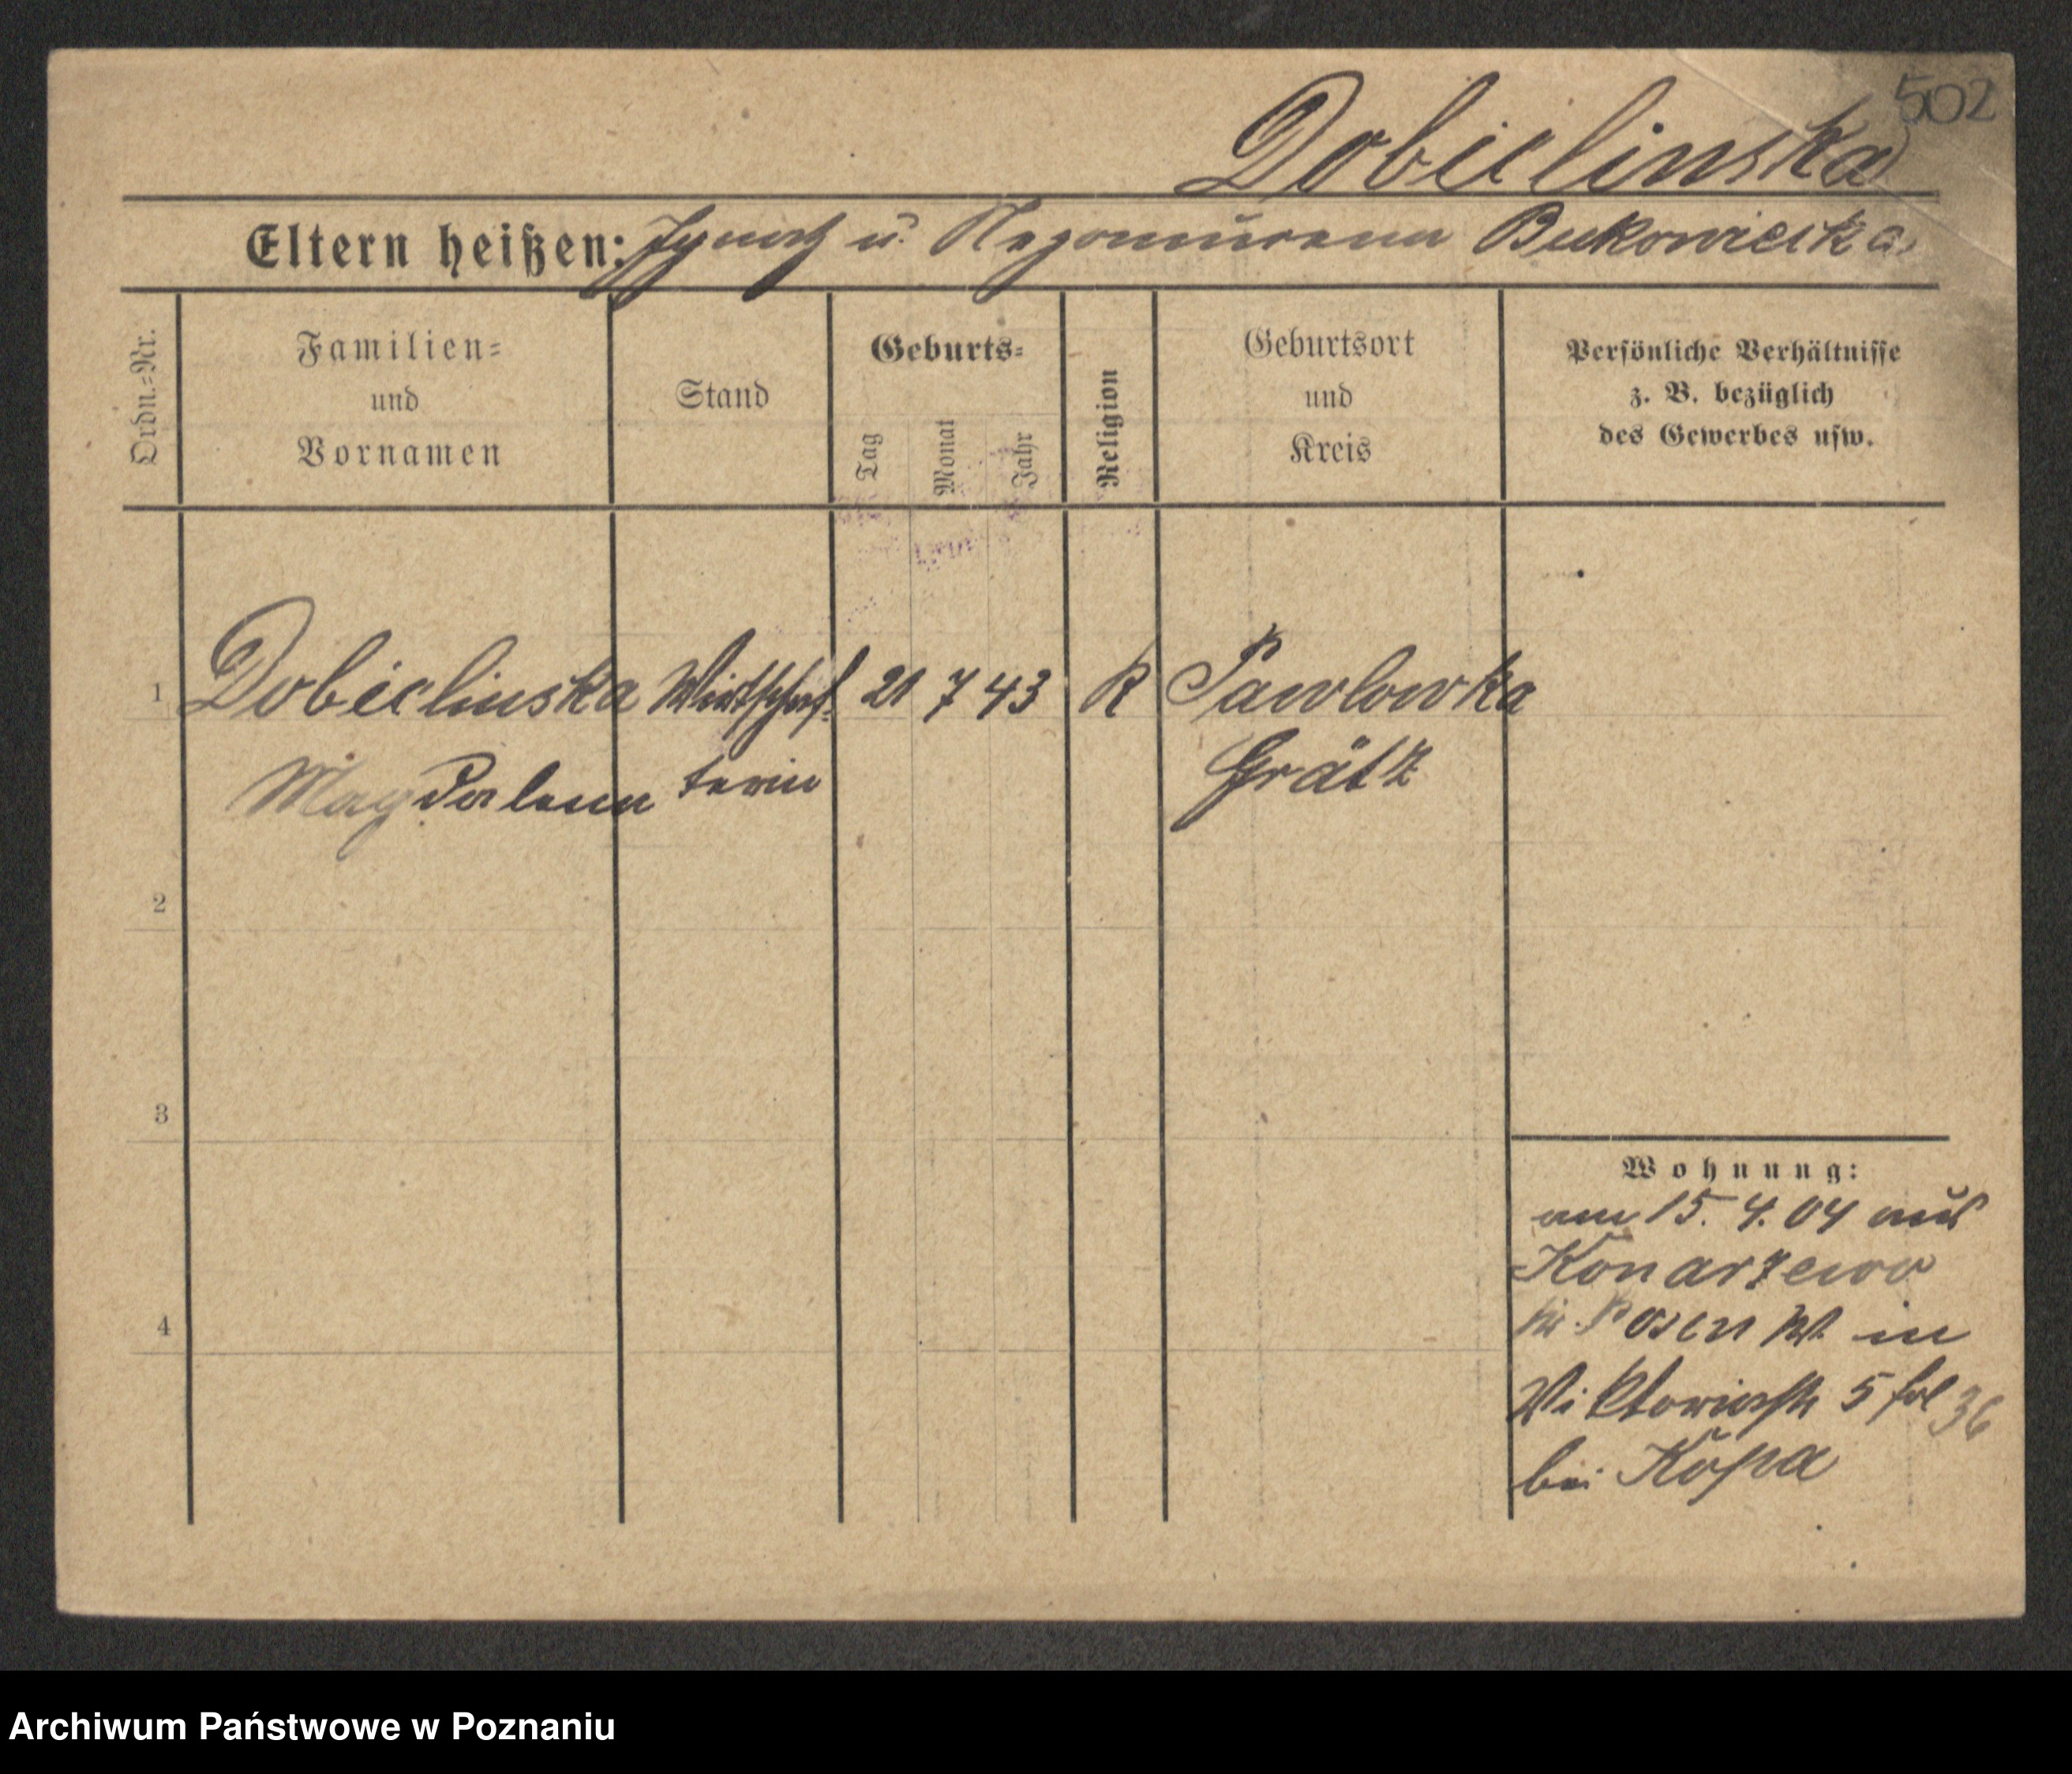 502
Dobielinska
Eltern heißen: Ignatz u. Nepomucena Bukowiecka
Ordn.-Nr.
Familien-
und
Vornamen
Stand
Geburts-
Tag
Monat
Jahr
Religion
Geburtsort
und
Kreis
Persönliche Verhältnisse
z. B. bezüglich
des Gewerbes usw.
1 Dobielinska Wirtschaf- 21 7 43 K Pawlowka
Magdalena terin Grätz
2
3
4
Wohnung:
am 15. 4. 04 aus
Konarzewo
Kr. Posen W. in
Viktoriastr 5 fol 36
bei Kopa
Archiwum Państwowe w Poznaniu